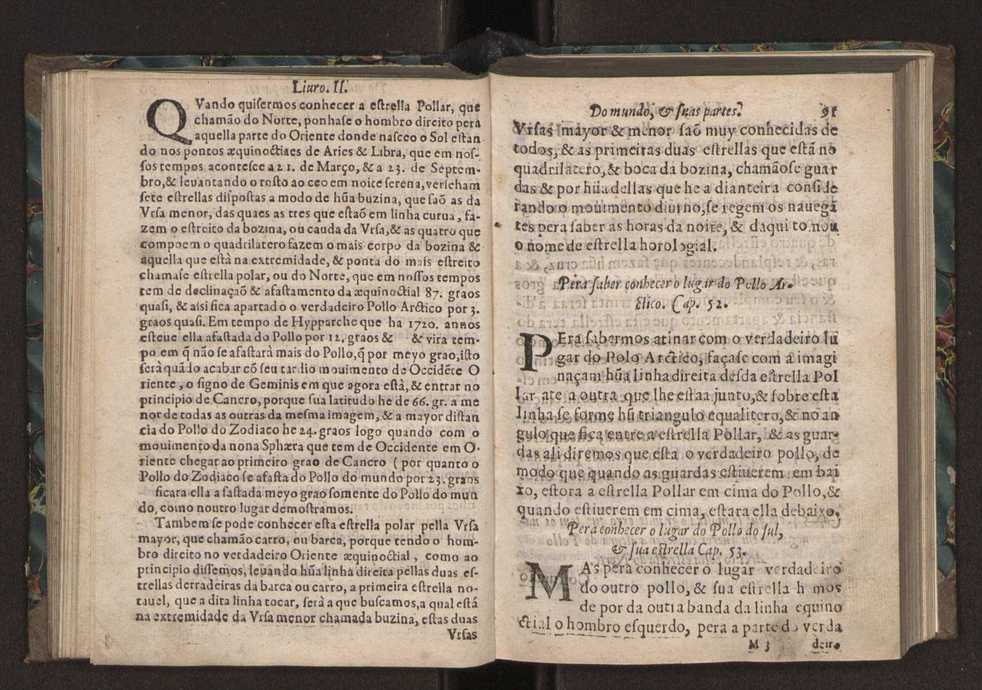 Liuro. II.
QVando quisermos conhecer a estrella Pollar, que
chamão do Norte, ponhase o hombro direito pera
aquella parte do Oriente donde nasceo o Sol estan
do nos pontos æquinoctiaes de Aries & Libra, que em nos-
sos tempos acontesce a 21. de Março, & a 23. de Septem-
bro, & leuantando o rosto ao ceo em noite serena, verseham
sete estrellas dispostas a modo de hũa buzina, que saõ as da
Vrsa menor, das quaes as tres que estaõ em linha curua, fa-
zem o estreito da bozina, ou cauda da Vrsa, & as quatro que
compoem o quadrilatero fazem o mais corpo da bozina &
aquella que està na extremidade, & ponta do mais estreito
chamase estrella polar, ou do Norte, que em nossos tempos
tem de declinaçaõ & afastamento da æquinoctial 87. graos
quasi, & assi fica apartado o verdadeiro Pollo Arctico por 3.
graos quasi. Em tempo de Hypparche que ha 1720. annos
esteue ella afastada do Pollo por 12. graos & & vira tem-
po em q̃ não se afastarà mais do Pollo, q̃ por meyo grao, isto
serà quãdo acabar cõ seu tardio mouimento de Occidẽte O
riente, o signo de Geminis em que agora està, & entrar no
principio de Cancro, porque sua latitudo he de 66. gr. a me
nor de todas as outras da mesma imagem, & a mayor distan
cia do Pollo do Zodiaco he 24. graos logo quando com o
mouimento da nona Sphæra que tem de Occidente em O-
riente chegar ao primeiro grao de Cancro ( por quanto o
Pollo do Zodiaco se afasta do Pollo do mundo por 23. graos
ficara ella afastada meyo grao somente do Pollo do mun
do, como noutro lugar demostramos.
Tambem se pode conhecer esta estrella polar pella Vrsa
mayor, que chamão carro, ou barca, porque tendo o hom-
bro direito no verdadeiro Oriente æquinoctial, como ao
principio dissemos, leuando hũa linha direita pellas duas es-
trellas derradeiras da barca ou carro, a primeira estrella no-
tauel, que a dita linha tocar, serà a que buscamos, a qual està
na extremidade da Vrsa menor chamada buzina, estas duas
Vrsas
Do mundo, & suas partes. 91
Vrsas mayor & menor saõ muy conhecidas de
todos, & as primeiras duas estrellas que està no
quadrilatero, & boca da bozina, chamãose guar
das & por hũa dellas que he a dianteira conside
rando o mouimento diurno, se regem os nauegã
tes pera saber as horas da noite, & daqui tomou
o nome de estrella horologial.
Pera saber conhecer o lugar do Pollo Ar-
ctico. Cap. 52.
PEra sabermos atinar com o verdadeiro lu
gar do Polo Arctico, façase com a imagi
naçam hũa linha direita desda estrella Pol
lar ate a outra que lhe estaa junto, & sobre esta
linha se forme hũ triangulo equalitero, & no an
gulo que fica entre a estrella Pollar, & as guar-
das ali diremos que està o verdadeiro pollo, de
modo que quando as guardas estiuerem em bai
xo, estora a estrella Pollar em cima do Pollo, &
quando estiuerem em cima, estara ella debaixo.
Pera conhecer o lugar do Pollo do sul,
& sua estrella Cap. 53.
MAs pera conhecer o lugar verdadeiro
do outro pollo, & sua estrella hemos
de por da outra banda da linha equino
ctial o hombro esquerdo, pera a parte do verda
M 3 deiro